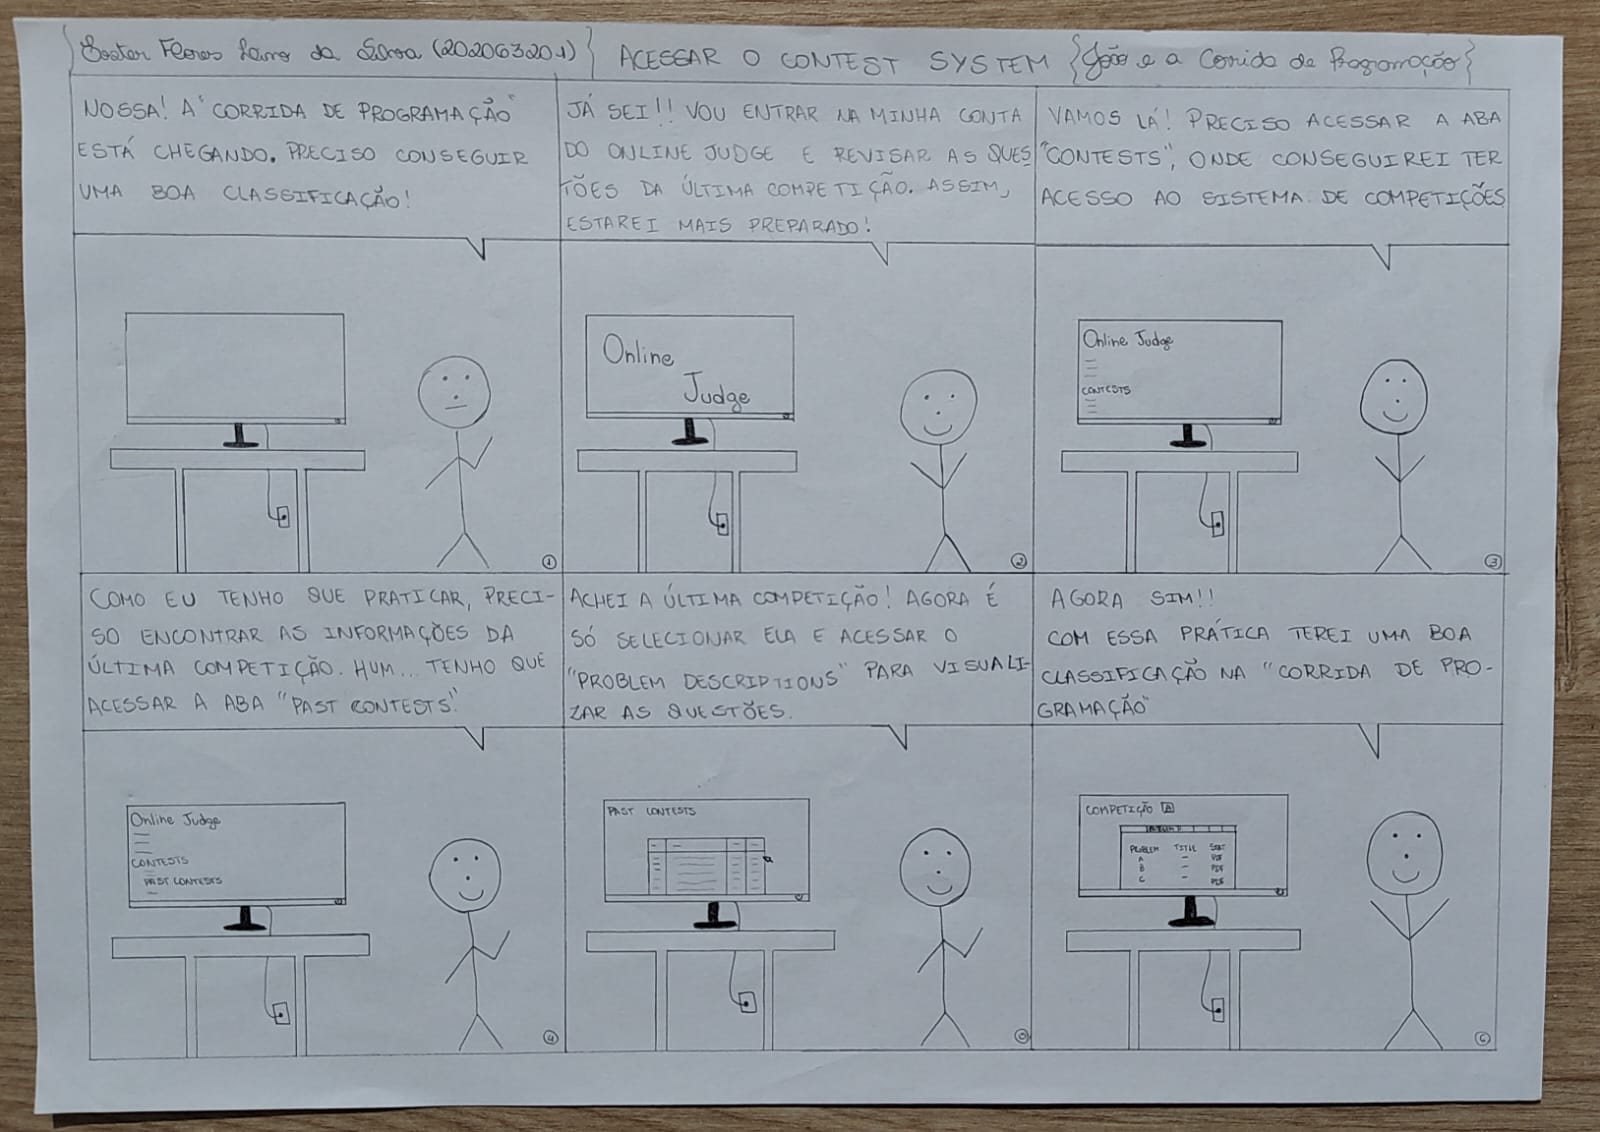 Flores da Silva (202063201)
ACESSAR O CONTEST SYSTEM
{João e a Corrida de Programação}
NOSSA! A "CORRIDA DE PROGRAMAÇÃO"
ESTÁ CHEGANDO. PRECISO CONSEGUIR
UMA BOA CLASSIFICAÇÃO!
JÁ SEI!! VOU ENTRAR NA MINHA CONTA
DO ONLINE JUDGE E REVISAR AS QUES-
TÕES DA ÚLTIMA COMPETIÇÃO. ASSIM,
ESTAREI MAIS PREPARADO!
VAMOS LÁ! PRECISO ACESSAR A ABA
"CONTESTS", ONDE CONSEGUIREI TER
ACESSO AO SISTEMA DE COMPETIÇÕES
1
Online
Judge
2
Online Judge
CONTESTS
3
COMO EU TENHO QUE PRATICAR, PRECI-
SO ENCONTRAR AS INFORMAÇÕES DA
ÚLTIMA COMPETIÇÃO. HUM... TENHO QUE
ACESSAR A ABA "PAST CONTESTS".
ACHEI A ÚLTIMA COMPETIÇÃO! AGORA É
SÓ SELECIONAR ELA E ACESSAR O
"PROBLEM DESCRIPTIONS" PARA VISUALI-
ZAR AS QUESTÕES.
AGORA SIM!!
COM ESSA PRÁTICA TEREI UMA BOA
CLASSIFICAÇÃO NA "CORRIDA DE PRO-
GRAMAÇÃO"
Online Judge
CONTESTS
PAST CONTESTS
4
PAST CONTESTS
5
COMPETIÇÃO A
PROBLEM TITLE
A PDF
B PDF
C PDF
6